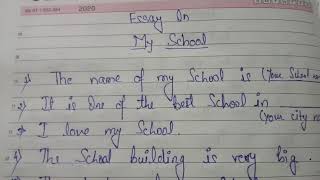 2020
Essay On
My School
1) The name of my School is (your School
2) It is One of the best School in ______
(your city
3) I love my School.
4) The School building is very big.